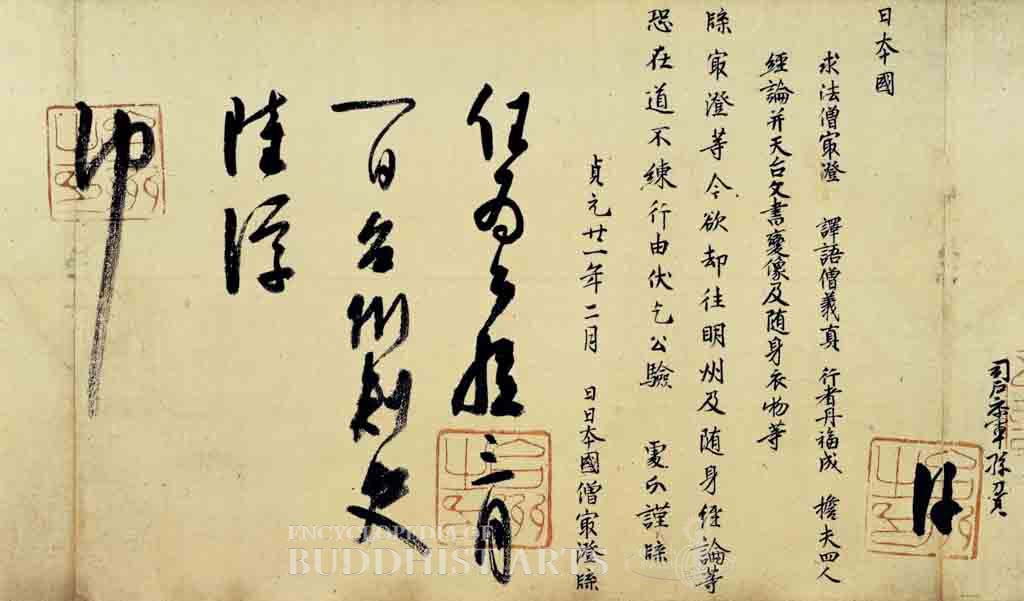 司戶參軍孫
日本國
求法僧㝡澄 譯語僧義真 行者丹福成 擔夫四人
經論并天台文書變像及随身衣物等
牒㝡澄等今欲却往明州及随身經論等
恐在道不練行由伏乞公驗 處分謹牒
貞元廿一年二月 日日本國僧㝡澄牒
任為公驗三月
一日台州刾史
陸淳
印
ENCYCLOPEDIA OF
BUDDHIST ARTS